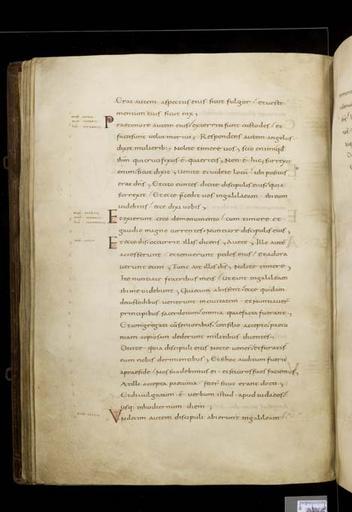 Erat autem aspectus eius sicut fulgur / et uesti
mentum eius sicut nix ;
Prae timore autem eius exterriti sunt custodes / et
facti sunt uelut mortui ; Respondens autem angelus
dixit mulierib; Nolite timere uos ; scio enim qd
ihm qui crucifixus e queritis ; Non e hic surrexit
enim sicut dixit ; Uenite et uidete locu ubi positus
erat dns ; Et cito euntes dicite discipulis eius quia
surrexit / Et ecce praecedit uos in galilaeam / ibi eum
uidebitis / ecce dixi uobis ;
Et exierunt cito de monumento / cum timore et
gaudio magno currentes nuntiare discipulis eius ;
Et ecce ihs occurrit illis dicens ; Auete ; Illae aute
accesserunt / et tenuerunt pedes eius / et adora
uerunt eum ; Tunc ait illis ihs ; Nolite timere ;
Ite nuntiate fratribus meis / ut eant in galilaeam
ibi me uidebunt ; Quae cum abissent / ecce quidam
de custodibus uenerunt in ciuitatem / et nuntiauer
principibus sacerdotum omnia quae facta fuerant ;
Et congregati cu senioribus / consilio accepto / pecu
niam copiosam dederunt militibus dicentes ;
Dicite / quia discipuli eius nocte uener / et furati s
eum nobis dormientibus ; Et si hoc auditum fuerit
a praeside / nos suadebimus ei / et securos uos faciemus ;
At illi accepta pecunia / fecer sicut erant docti ;
Et diuulgatum e uerbum istud / apud iudaeos /
usq; in hodiernum diem ;
Undecim autem discipuli abierunt in galilaeam